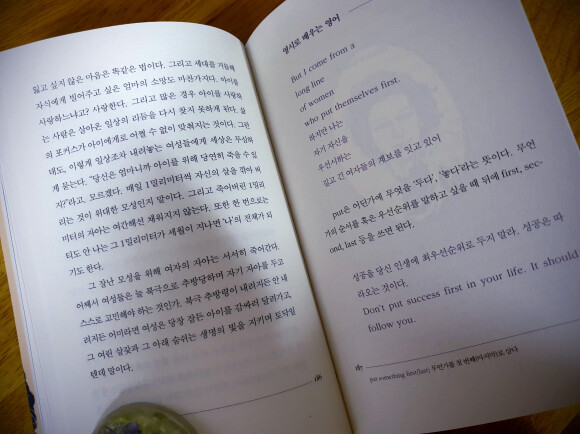 잃고 싶지 않은 마음은 똑같은 법이다. 그리고 세대를 거듭해
자식에게 빌어주고 싶은 엄마의 소망도 마찬가지다. 아이를
사랑하느냐고? 사랑한다. 그리고 많은 경우 아이를 사랑하
는 사람은 살아온 일상의 리듬을 다시 찾지 못하게 된다. 삶
의 포커스가 아이에게로 어쩔 수 없이 맞춰지는 것이다. 그런
데도, 이렇게 일상조차 내려놓는 여성들에게 세상은 무심하
게 묻는다. "당신은 엄마니까 아이를 위해 당연히 죽을 수 있
지?"라고. 모르겠다. 매일 1밀리미터씩 자신의 삶을 깎아 버
리는 것이 위대한 모성인지 말이다. 그리고 죽어버린 1밀리
미터의 자아는 여간해선 채워지지 않는다. 또한 한 번으로는
티도 안 나는 그 1밀리미터가 세월이 지나면 '나'의 전체가 되
기도 한다.
그 잘난 모성을 위해 여자의 자아는 서서히 죽어간다.
어째서 여성들은 늘 북극으로 추방당하며 자기 자아를 두고
스스로 고민해야 하는 것인가. 북극 추방령이 내려지든 안 내
려지든 어미라면 여성은 당장 잠든 아이를 감싸러 달려가고
그 여린 살갗과 그 아래 숨쉬는 생명의 빛을 지키며 토닥일
텐데 말이다.
186
영시로 배우는 영어
But I come from a
long line
of women
who put themselves first.
하지만 나는
자기 자신을
우선시하는
길고 긴 여자들의 계보를 잇고 있어
put은 어딘가에 무엇을 '두다', '놓다'라는 뜻이다. 무언
가의 순서를 혹은 우선순위를 말하고 싶을 때 뒤에 first, sec-
ond, last 등을 쓰면 된다.
성공을 당신 인생에 최우선순위로 두지 말라. 성공은 따
라오는 것이다.
Don't put success first in your life. It should
follow you.
187
put something first(last) 무언가를 첫 번째(마지막)로 삼다